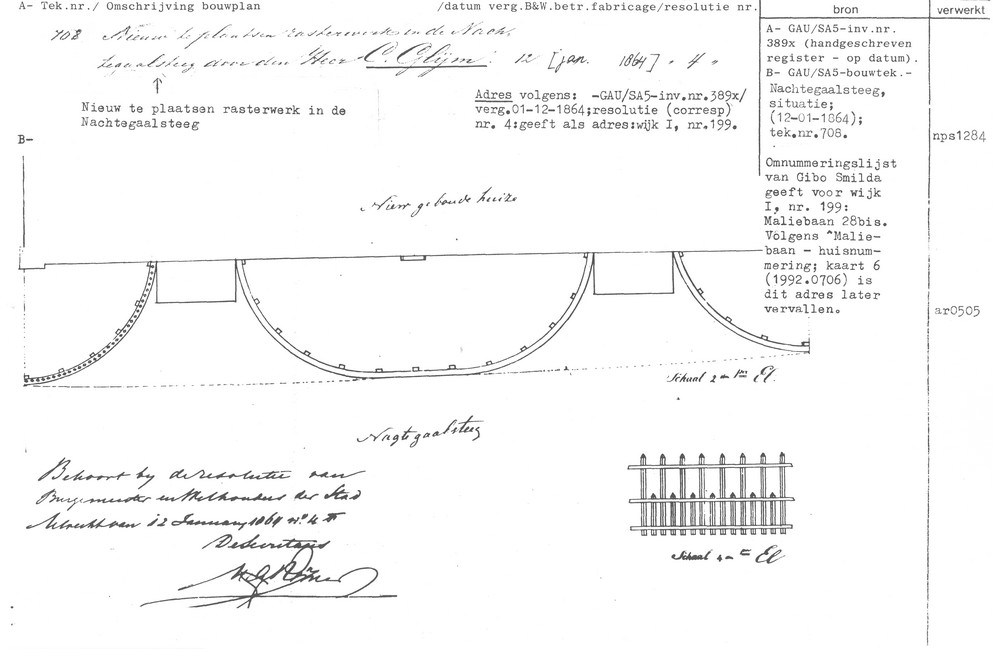 A- Tek.nr./ Omschrijving bouwplan /datum verg.B&W.betr.fabricage/resolutie nr. bron verwerkt
708 Nieuw te plaatsen rasterwerk in de Nach-
tegaalsteeg door den Heer C. Glijm. 12 [jan. 1864] „ 4 „
Nieuw te plaatsen rasterwerk in de
Nachtegaalsteeg
Adres volgens: -GAU/SA5-inv.nr.389x/
verg.01-12-1864;resolutie (corresp)
nr. 4:geeft als adres:wijk I, nr.199.
A- GAU/SA5-inv.nr.
389x (handgeschreven
register - op datum).
B- GAU/SA5-bouwtek.-
Nachtegaalsteeg,
situatie;
(12-01-1864);
tek.nr.708.
nps1284
Omnummeringslijst
van Gibo Smilda
geeft voor wijk
I, nr. 199:
Maliebaan 28bis.
Volgens "Malie-
baan - huisnum-
mering; kaart 6
(1992.0706) is
dit adres later
vervallen.
ar0505
B-
Nieuw geboude huize
Schaal 2 El.
Nagtegaalsteeg
Behoort by de resolutie van
Burgemeester en Wethouders der Stad
Utrecht van 12 January 1864 n° 4
De Secretaris
Schaal 4 El